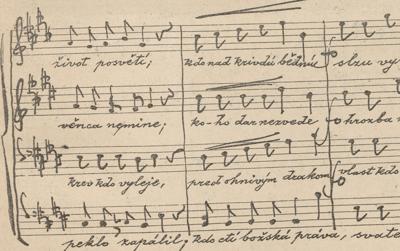 život posvětí; kdo nad krivdú bědníc slzu vy
věnca nemine; ko-ho dar nezvede o hrozba
krev kdo vyleje, pred ohnivým drakom vlast kdo
peklo zapálil, kdo ctí božská práva, svate